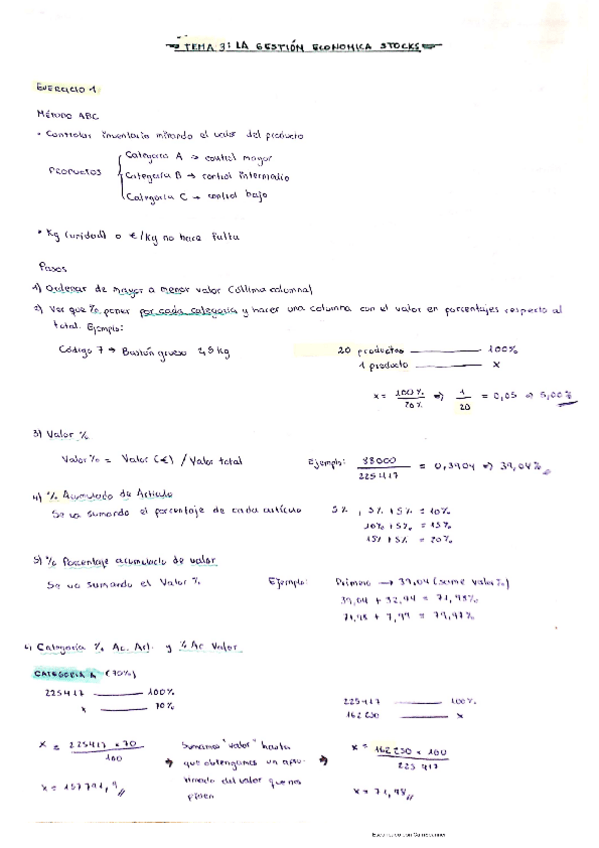 TEMA 3: LA GESTIÓN ECONOMICA STOCKS
EJERCICIO 1
Método ABC
• Controlar inventario mirando el valor del producto
PRODUCTOS
Categoría A → control mayor
Categoría B → control intermedio
Categoría C → control bajo
* Kg (unidad) o €/Kg no hace falta
Pasos
1) Ordenar de mayor a menor valor (última columna)
2) Ver que % poner por cada categoría y hacer una columna con el valor en porcentajes respecto al
total. Ejemplo:
Código 7 → grueso Kg
20 productos 100%
1 producto x
x = 100% / 20% ⇒ 1/20 = 0,05 ⇒ 5,00%
3) Valor %
Valor % = Valor (€) / Valor total
Ejemplo: 88000 / 225417 = 0,3904 ⇒ 39,04%
4) % Acumulado de Artículo
Se va sumando el porcentaje de cada artículo
5%, 5% + 5% = 10%
10% + 5% = 15%
15% + 5% = 20%
5) % Porcentaje acumulado de valor
Se va sumando el Valor %
Ejemplo: Primero → 39,04 (mismo valor %)
39,04 + 32,94 = 71,98%
71,98 + 7,99 = 79,97%
6) Categoría % Ac. Art. y % Ac Valor
CATEGORIA A (70%)
225417 100%
x 70%
x = 225417 × 70 / 100
x = 157791,9
Sumamos "valor" hasta
que obtengamos un
del valor que nos
piden
225417 100%
162250 x
x = 162250 × 100 / 225417
x = 71,98
Escaneado con CamScanner